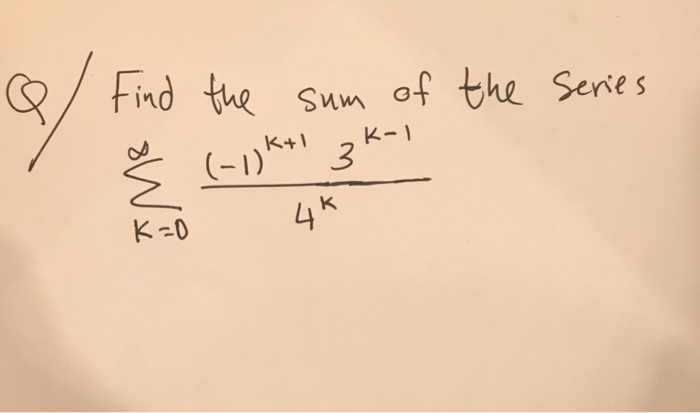 Q/ Find the sum of the series
∞
∑ (-1)^{K+1} 3^{K-1} / 4^K
K=0